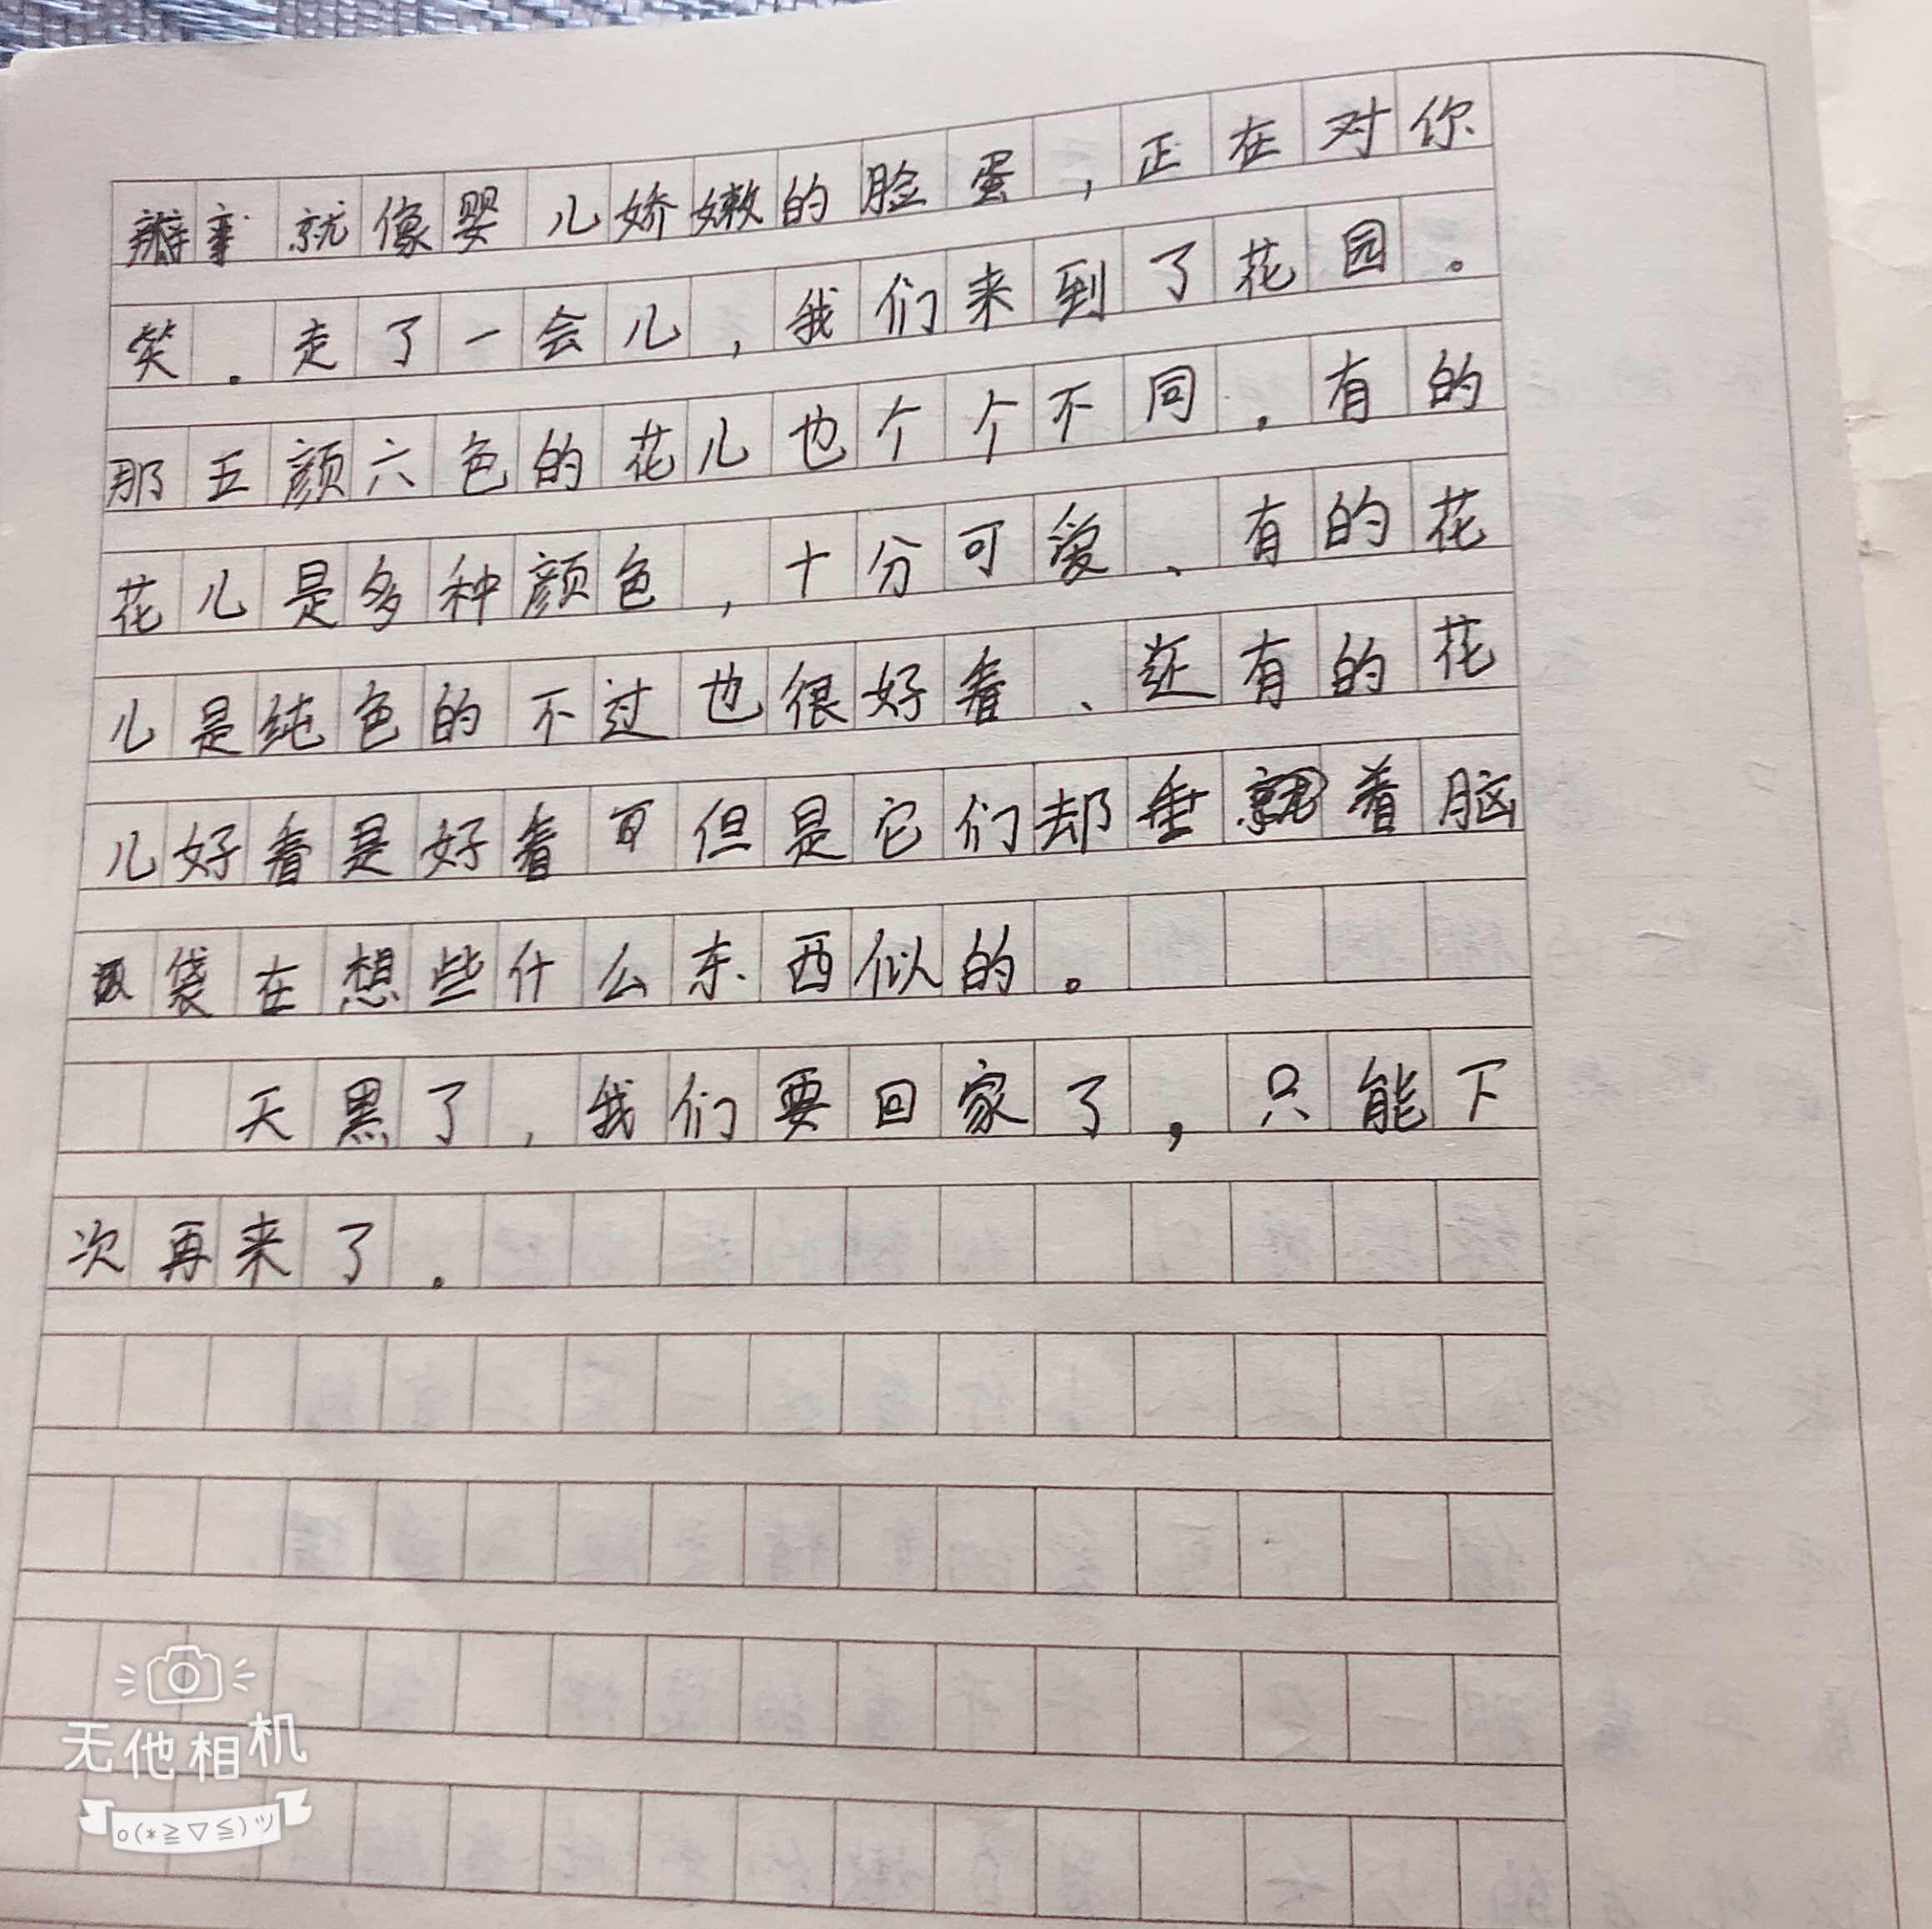 瓣就像婴儿娇嫩的脸蛋，正在对你
笑。走了一会儿，我们来到了花园。
那五颜六色的花儿也个个不同。有的
花儿是多种颜色，十分可爱、有的花
儿是纯色的不过也很好看、还有的花
儿好看是好看可但是它们却垂着脑
袋在想些什么东西似的。
天黑了，我们要回家了，只能下
次再来了。
无他相机
o(*≧▽≦)ツ